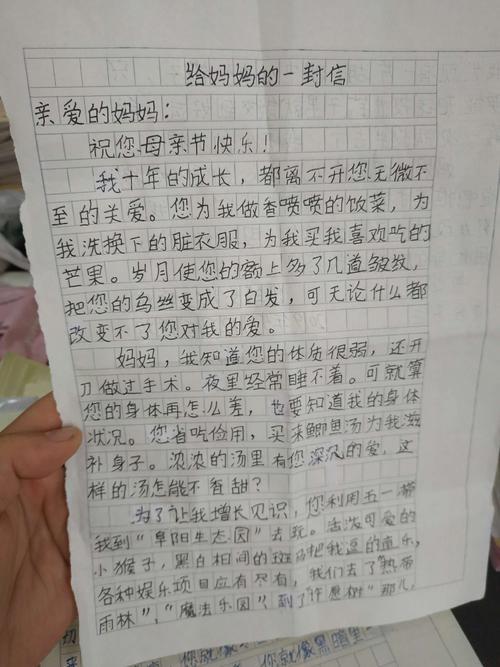 给妈妈的一封信
亲爱的妈妈：
祝您母亲节快乐！
我十年的成长，都离不开您无微不
至的关爱。您为我做香喷喷的饭菜，为
我洗换下的脏衣服，为我买我喜欢吃的
芒果。岁月使您的额上多了几道皱纹，
把您的乌丝变成了白发，可无论什么都
改变不了您对我的爱。
妈妈，我知道您的体质很弱，还开
刀做过手术。夜里经常睡不着。可就算
您的身体再怎么差，也要知道我的身体
状况。您省吃俭用，买来鲫鱼汤为我滋
补身子。浓浓的汤里有您深沉的爱，这
样的汤怎能不香甜？
为了让我增长见识，您利用五一带
我到“阜阳生态园”去玩。活泼可爱的
小猴子，黑白相间的斑马把我逗的直乐，
各种娱乐项目应有尽有，我们去了“热带
雨林”，“魔法乐园”，到了“许愿树”那儿，